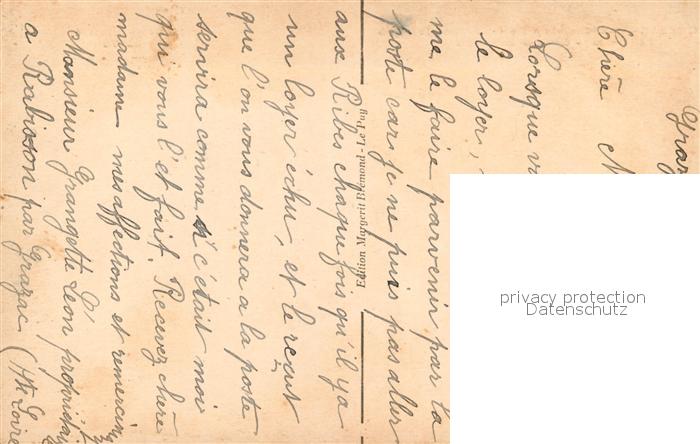 Graz
Chère M
Lorsque v
le loyer,
me le faire parvenir par la
poste car je ne puis pas aller
aux Ribes chaque fois qu'il y a
un loyer échu, et le reçut
que l'on vous donnera a la poste
servira comme si c'était moi
qui vous l'et fait. Recevez chère
madame mes affections et remercim
Monsieur Grangette Léon propriétai
a Rabisson par Grazac (Hte Loire
Edition Margerit Brémond - Le Puy
privacy protection
Datenschutz